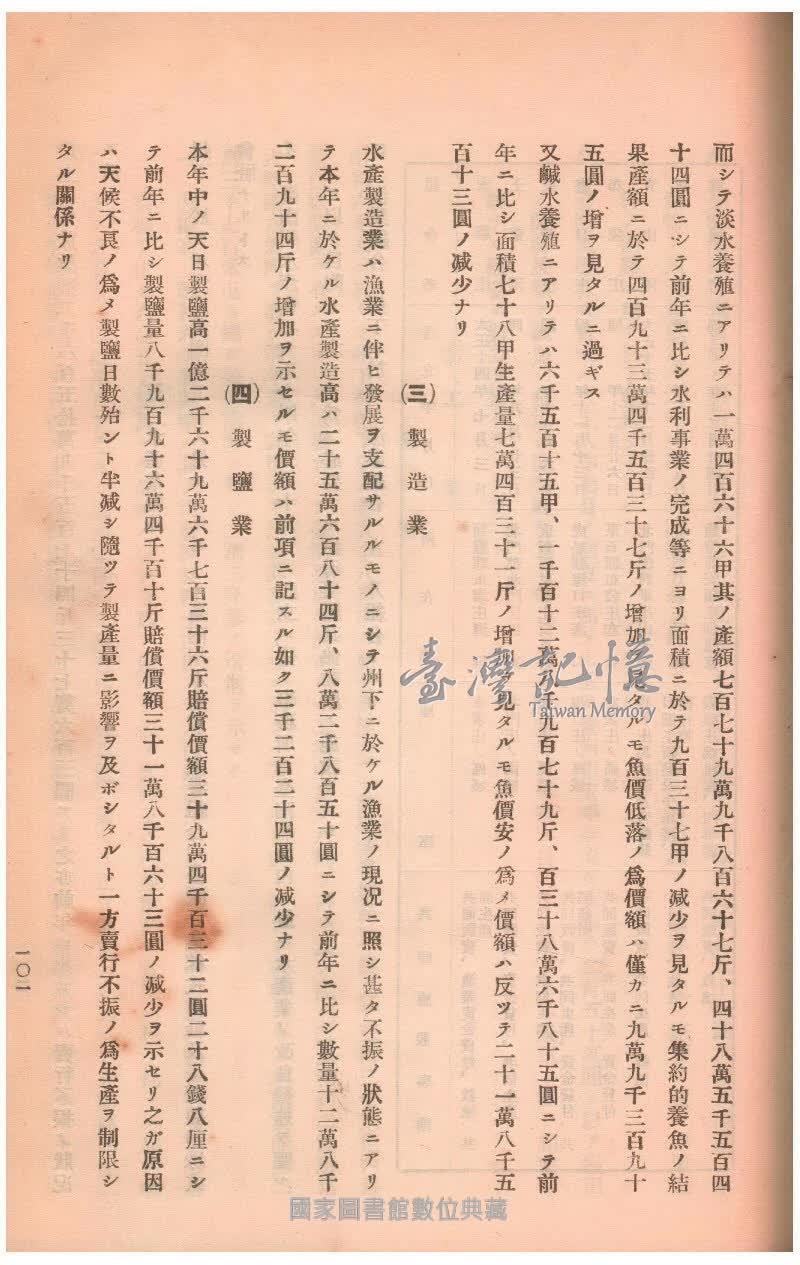 而シテ淡水養殖ニアリテハ一萬四百六十六甲其ノ產額七百七十九萬九千八百六十七斤、四十八萬五千五百四
十四圓ニシテ前年ニ比シ水利事業ノ完成等ニヨリ面積ニ於テ九百三十七甲ノ減少ヲ見タルモ集約的養魚ノ結
果產額ニ於テ四百九十三萬四千五百三十七斤ノ增加ヲ見タルモ魚價低落ノ爲價額ハ僅カニ九萬九千三百九十
五圓ノ增ヲ見タルニ過ギス
又鹹水養殖ニアリテハ六千五百十五甲、一千百十二萬八千九百七十九斤、百三十八萬六千八十五圓ニシテ前
年ニ比シ面積七十八甲生產量七萬四百三十一斤ノ增加ヲ見タルモ魚價安ノ爲メ價額ハ反ツテ二十一萬八千五
百十三圓ノ減少ナリ
(三) 製造業
水產製造業ハ漁業ニ伴ヒ發展ヲ支配サルルモノニシテ州下ニ於ケル漁業ノ現況ニ照シ甚タ不振ノ狀態ニアリ
テ本年ニ於ケル水產製造高ハ二十五萬六百八十四斤、八萬二千八百五十圓ニシテ前年ニ比シ數量十二萬八千
二百九十四斤ノ增加ヲ示セルモ價額ハ前項ニ記スル如ク三千二百二十四圓ノ減少ナリ
(四) 製鹽業
本年中ノ天日製鹽高一億二千六十九萬六千七百三十六斤賠償價額三十九萬四千百三十二圓二十八錢八厘ニシ
テ前年ニ比シ製鹽量八千九百九十六萬四千百十斤賠償價額三十一萬八千百六十三圓ノ減少ヲ示セリ之ガ原因
ハ天候不良ノ爲メ製鹽日數殆ント半減シ隨ツテ製產量ニ影響ヲ及ボシタルト一方賣行不振ノ爲生產ヲ制限シ
タル關係ナリ
一〇一
臺灣記憶
Taiwan Memory
國家圖書館數位典藏